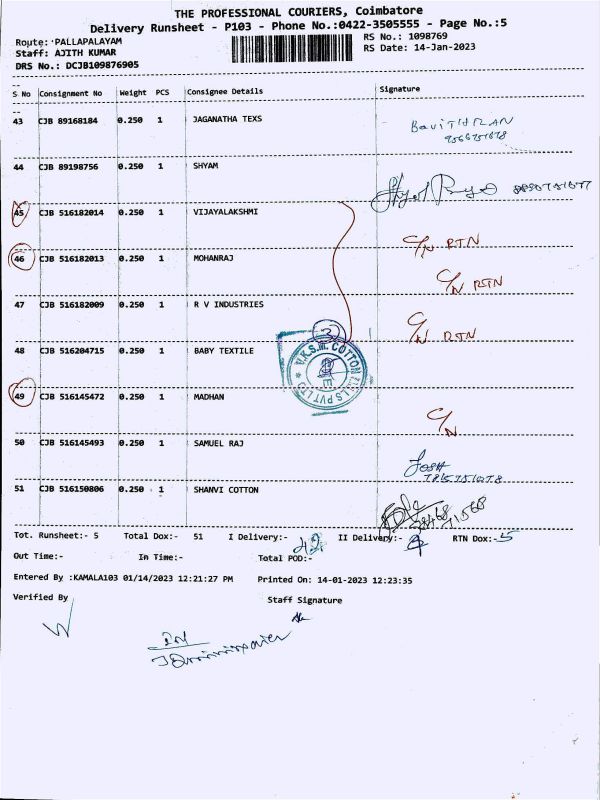 THE PROFESSIONAL COURIERS, Coimbatore
Delivery Runsheet - P103 - Phone No.:0422-3505555 - Page No.:5
Route: PALLAPALAYAM
RS No.: 1098769
Staff: AJITH KUMAR
RS Date: 14-Jan-2023
DRS No.: DCJB109876905
S No Consignment No Weight PCS Consignee Details Signature
43 CJB 89168184 0.250 1 JAGANATHA TEXS
44 CJB 89198756 0.250 1 SHYAM
45 CJB 516182014 0.250 1 VIJAYALAKSHMI C/N RTN
46 CJB 516182013 0.250 1 MOHANRAJ C/N RTN
47 CJB 516182009 0.250 1 R V INDUSTRIES C/N RTN
48 CJB 516204715 0.250 1 BABY TEXTILE
V.K.S.M. COTTON MILLS PVT LTD
49 CJB 516145472 0.250 1 MADHAN C/N
50 CJB 516145493 0.250 1 SAMUEL RAJ
51 CJB 516150806 0.250 1 SHANVI COTTON
Tot. Runsheet:- 5 Total Dox:- 51 I Delivery:- II Delivery:- RTN Dox:- 5
Out Time:- In Time:- Total POD:-
Entered By :KAMALA103 01/14/2023 12:21:27 PM Printed On: 14-01-2023 12:23:35
Verified By Staff Signature